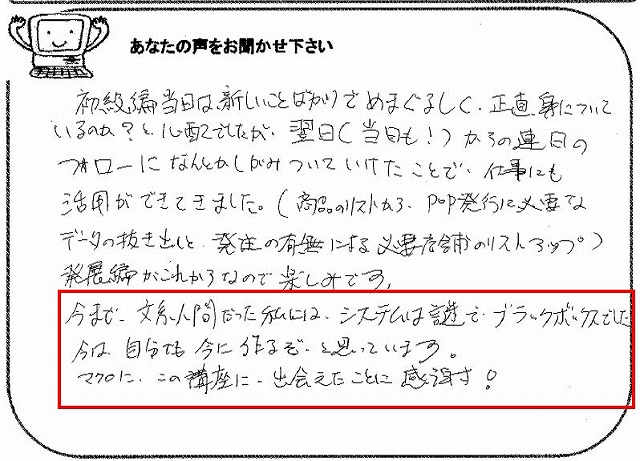 あなたの声をお聞かせ下さい
初級編当日は新しいことばかりでめまぐるしく、正直身について
いるのか?と心配でしたが、翌日(当日も!)からの連日の
フォローになんとかしがみついていけたことで、仕事にも
活用ができてきました。(商品のリストから、POP発行に必要な
データの抜き出しと、発注の有無による必要店舗のリストアップ)
発展編がこれからなので楽しみです。
今まで、文系人間だった私には、システムは謎で、ブラックボックスでした
今は、自分でも今に作るぞ、と思っています。
マクロに、この講座に、出会えたことに感謝です!